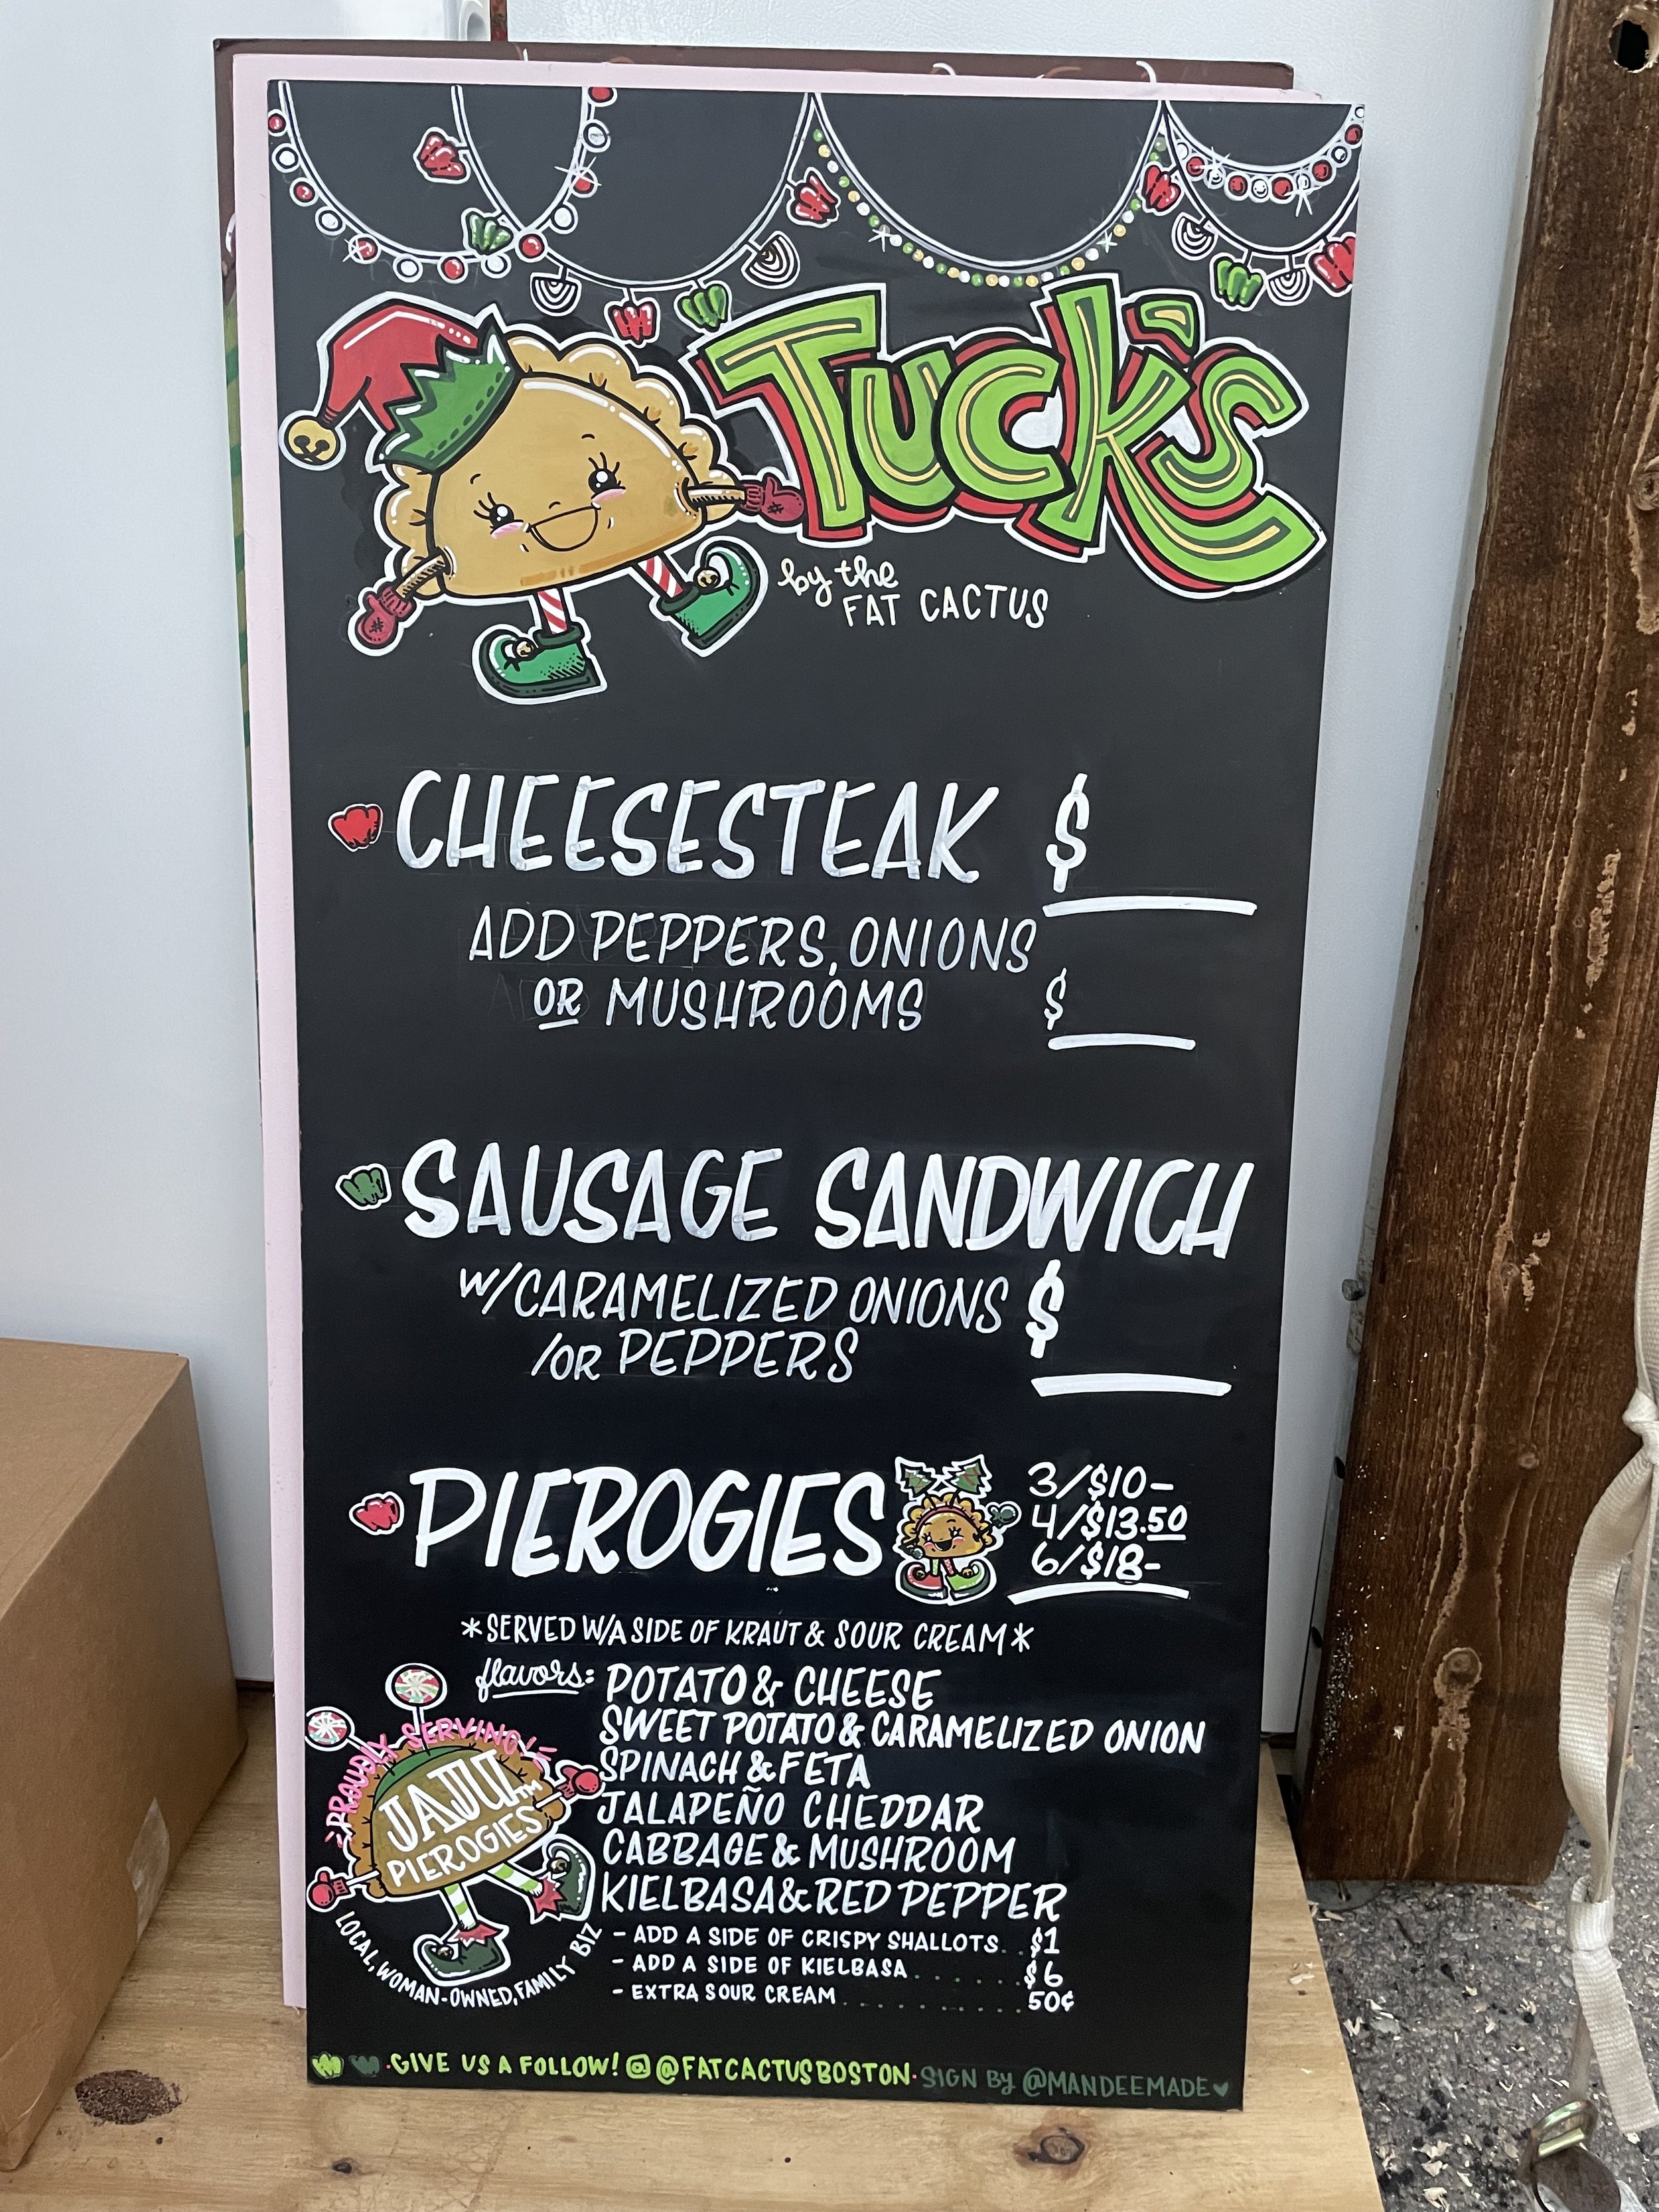 TUCK'S
by the
FAT CACTUS
CHEESESTEAK $
ADD PEPPERS, ONIONS
OR MUSHROOMS $
SAUSAGE SANDWICH
W/CARAMELIZED ONIONS $
/OR PEPPERS
PIEROGIES
3/$10-
4/$13.50
6/$18-
*SERVED W/A SIDE OF KRAUT & SOUR CREAM*
flavors: POTATO & CHEESE
SWEET POTATO & CARAMELIZED ONION
SPINACH & FETA
JALAPEÑO CHEDDAR
CABBAGE & MUSHROOM
KIELBASA & RED PEPPER
- ADD A SIDE OF CRISPY SHALLOTS.. $1
- ADD A SIDE OF KIELBASA ...... $6
- EXTRA SOUR CREAM .......... 50¢
PROUDLY SERVING!
JAJU™
PIEROGIES
LOCAL, WOMAN-OWNED, FAMILY BIZ
·GIVE US A FOLLOW! @FATCACTUSBOSTON·SIGN By @MANDEEMADE